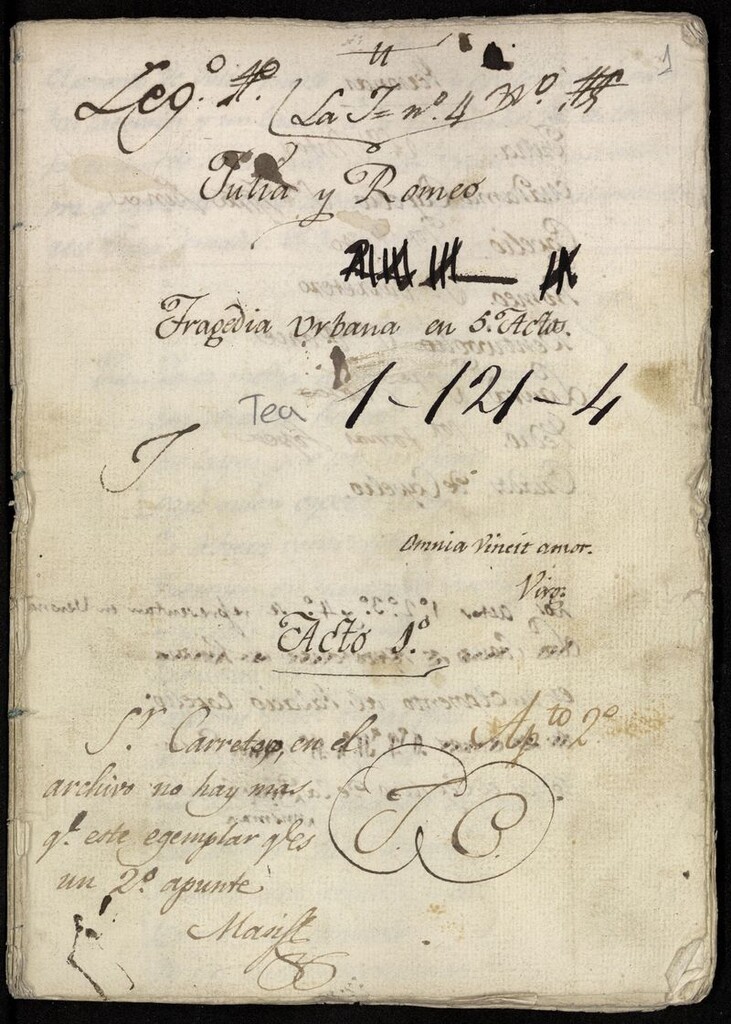 1
Leg.º 4º. La J= nº. 4
Julia y Romeo
Tragedia Urbana en 5.º Actos.
Tea 1-121-4
J
Omnia Vincit amor.
Virg.
Acto 1.º
Ap.to 2º
S.r Carretero, en el
archivo no hay mas
q.e este egemplar q.e es
un 2.º apunte
J. C.